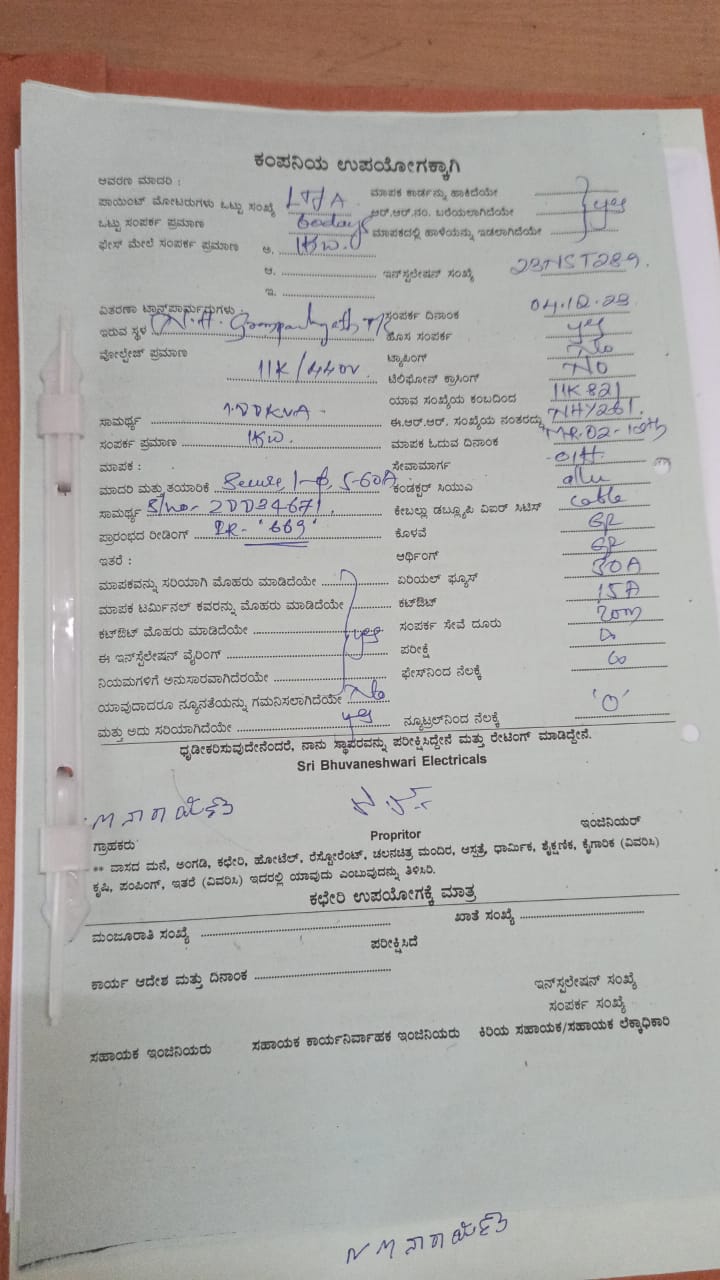 ಕಂಪನಿಯ ಉಪಯೋಗಕ್ಕಾಗಿ
ಆವರಣ ಮಾದರಿ :
ಪಾಯಿಂಟ್ ಮೋಟರುಗಳು ಒಟ್ಟು ಸಂಖ್ಯೆ ಮಾಪಕ ಕಾರ್ಡನ್ನು ಹಾಕಿದೆಯೇ
ಒಟ್ಟು ಸಂಪರ್ಕ ಪ್ರಮಾಣ 60days ಆರ್.ಆರ್.ನಂ. ಬರೆಯಲಾಗಿದೆಯೇ yes
ಫೇಸ್ ಮೇಲೆ ಸಂಪರ್ಕ ಪ್ರಮಾಣ ಅ. 1KW. ಮಾಪಕದಲ್ಲಿ ಹಾಳೆಯನ್ನು ಇಡಲಾಗಿದೆಯೇ
ಆ. ಇನ್‌ಸ್ಟಲೇಷನ್ ಸಂಖ್ಯೆ 23NST289.
ಇ.
ವಿತರಣಾ ಟ್ರಾನ್ಸ್‌ಫಾರ್ಮರುಗಳು : ಸಂಪರ್ಕ ದಿನಾಂಕ 04.12.23
ಇರುವ ಸ್ಥಳ ಹೊಸ ಸಂಪರ್ಕ yes
ವೋಲ್ಟೇಜ್ ಪ್ರಮಾಣ 11K/440V ಟ್ಯಾಪಿಂಗ್ No
ಟೆಲಿಫೋನ್ ಕ್ರಾಸಿಂಗ್ No
ಯಾವ ಸಂಖ್ಯೆಯ ಕಂಬದಿಂದ 11K821
ಸಾಮರ್ಥ್ಯ 100KVA ಈ.ಆರ್.ಆರ್. ಸಂಖ್ಯೆಯ ನಂತರದ್ದು NHY261.
ಸಂಪರ್ಕ ಪ್ರಮಾಣ 1KW. ಮಾಪಕ ಓದುವ ದಿನಾಂಕ MR.02-10th
ಮಾಪಕ : ಸೇವಾಮಾರ್ಗ O/H
ಮಾದರಿ ಮತ್ತು ತಯಾರಿಕೆ Secure 1-φ, 5-60A ಕಂಡಕ್ಟರ್ ಸಿಯುಎ allu
ಸಾಮರ್ಥ್ಯ S/no- 20034671. ಕೇಬಲ್ಲು ಡಬ್ಲ್ಯೂಪಿ ವಿಐರ್ ಸಿಟಿಸ್ cable
ಪ್ರಾರಂಭದ ರೀಡಿಂಗ್ IR- '669' ಕೊಳವೆ GP
ಇತರೆ : ಆರ್ಥಿಂಗ್ GP
ಮಾಪಕವನ್ನು ಸರಿಯಾಗಿ ಮೊಹರು ಮಾಡಿದೆಯೇ ಏರಿಯಲ್ ಫ್ಯೂಸ್ 30A
ಮಾಪಕ ಟರ್ಮಿನಲ್ ಕವರನ್ನು ಮೊಹರು ಮಾಡಿದೆಯೇ ಕಟ್‌ಔಟ್ 15A
ಕಟ್‌ಔಟ್ ಮೊಹರು ಮಾಡಿದೆಯೇ yes ಸಂಪರ್ಕ ಸೇವೆ ದೂರು 20m
ಈ ಇನ್‌ಸ್ಟೆಲೇಷನ್ ವೈರಿಂಗ್ ಪರೀಕ್ಷೆ ∞
ನಿಯಮಗಳಿಗೆ ಅನುಸಾರವಾಗಿದೆರಯೇ ಫೇಸ್‌ನಿಂದ ನೆಲಕ್ಕೆ ∞
ಯಾವುದಾದರೂ ನ್ಯೂನತೆಯನ್ನು ಗಮನಿಸಲಾಗಿದೆಯೇ No
ಮತ್ತು ಅದು ಸರಿಯಾಗಿದೆಯೇ yes ನ್ಯೂಟ್ರಲ್‌ನಿಂದ ನೆಲಕ್ಕೆ '0'
ಧೃಡೀಕರಿಸುವುದೇನೆಂದರೆ, ನಾನು ಸ್ಥಾಪರವನ್ನು ಪರೀಕ್ಷಿಸಿದ್ದೇನೆ ಮತ್ತು ರೇಟಿಂಗ್ ಮಾಡಿದ್ದೇನೆ.
Sri Bhuvaneshwari Electricals
ಗ್ರಾಹಕರು Propritor ಇಂಜಿನಿಯರ್
** ವಾಸದ ಮನೆ, ಅಂಗಡಿ, ಕಛೇರಿ, ಹೋಟೆಲ್, ರೆಸ್ಟೋರೆಂಟ್, ಚಲನಚಿತ್ರ ಮಂದಿರ, ಆಸ್ಪತ್ರೆ, ಧಾರ್ಮಿಕ, ಶೈಕ್ಷಣಿಕ, ಕೈಗಾರಿಕ (ವಿವರಿಸಿ)
ಕೃಷಿ, ಪಂಪಿಂಗ್, ಇತರೆ (ವಿವರಿಸಿ) ಇದರಲ್ಲಿ ಯಾವುದು ಎಂಬುವುದನ್ನು ತಿಳಿಸಿರಿ.
ಕಛೇರಿ ಉಪಯೋಗಕ್ಕೆ ಮಾತ್ರ
ಮಂಜೂರಾತಿ ಸಂಖ್ಯೆ ಖಾತೆ ಸಂಖ್ಯೆ
ಪರೀಕ್ಷಿಸಿದೆ
ಕಾರ್ಯ ಆದೇಶ ಮತ್ತು ದಿನಾಂಕ
ಇನ್‌ಸ್ಟಲೇಷನ್ ಸಂಖ್ಯೆ
ಸಂಪರ್ಕ ಸಂಖ್ಯೆ
ಸಹಾಯಕ ಇಂಜಿನಿಯರು ಸಹಾಯಕ ಕಾರ್ಯನಿರ್ವಾಹಕ ಇಂಜಿನಿಯರು ಕಿರಿಯ ಸಹಾಯಕ/ಸಹಾಯಕ ಲೆಕ್ಕಾಧಿಕಾರಿ